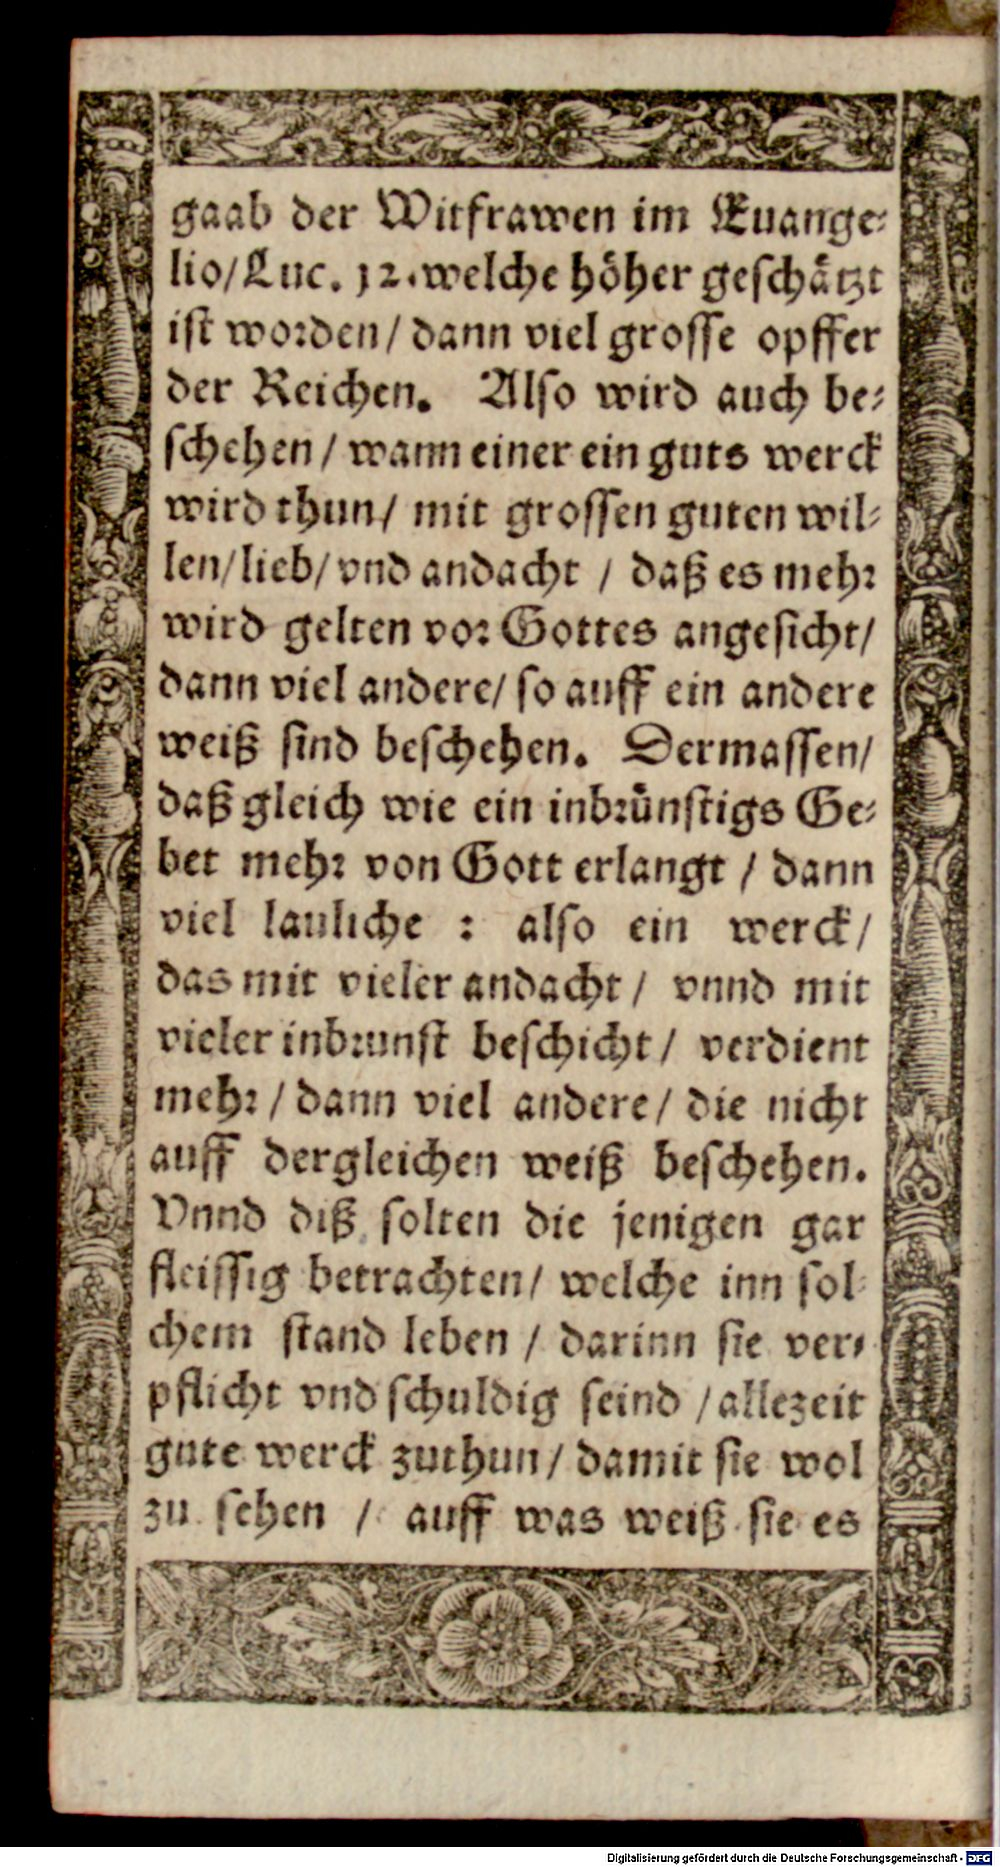 gaab der Witfrawen im Euange⸗
lio/Luc. 12. welche höher geschätzt
ist worden/ dann viel grosse opffer
der Reichen. Also wird auch be⸗
schehen/ wann einer ein guts werck
wird thun/ mit grossen guten wil⸗
len/lieb/vnd andacht / daß es mehr
wird gelten vor Gottes angesicht/
dann viel andere/ so auff ein andere
weiß sind beschehen. Dermassen/
daß gleich wie ein inbrünstigs Ge⸗
bet mehr von Gott erlangt / dann
viel lauliche : also ein werck/
das mit vieler andacht / vnnd mit
vieler inbrunst beschicht/ verdient
mehr / dann viel andere/ die nicht
auff dergleichen weiß beschehen.
Vnnd diß solten die jenigen gar
fleissig betrachten/ welche inn sol⸗
chem stand leben / darinn sie ver⸗
pflicht vnd schuldig seind /allezeit
gute werck zuthun/ damit sie wol
zu sehen / auff was weiß sie es
Digitalisierung gefördert durch die Deutsche Forschungsgemeinschaft - DFG